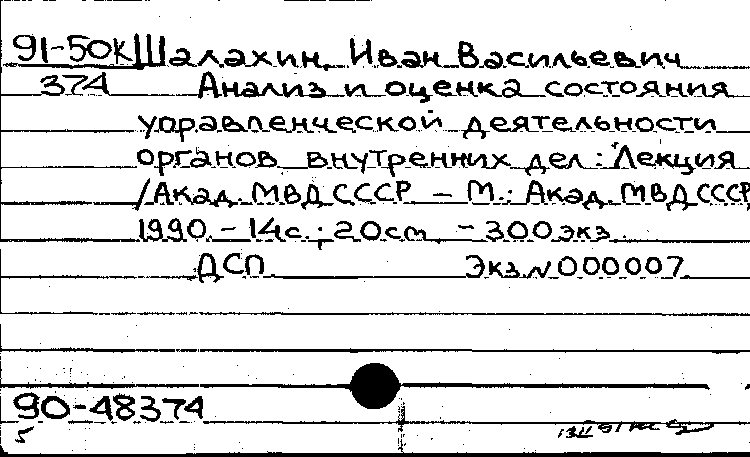 91-50К Шалахин, Иван Васильевич
374 Анализ и оценка состояния
управленческой деятельности
органов внутренних дел: Лекция
/Акад. МВД СССР. – М.: Акад. МВД СССР,
1990. – 14с.; 20см. – 300 экз.
ДСП. Экз. N 000007
90-48374
5